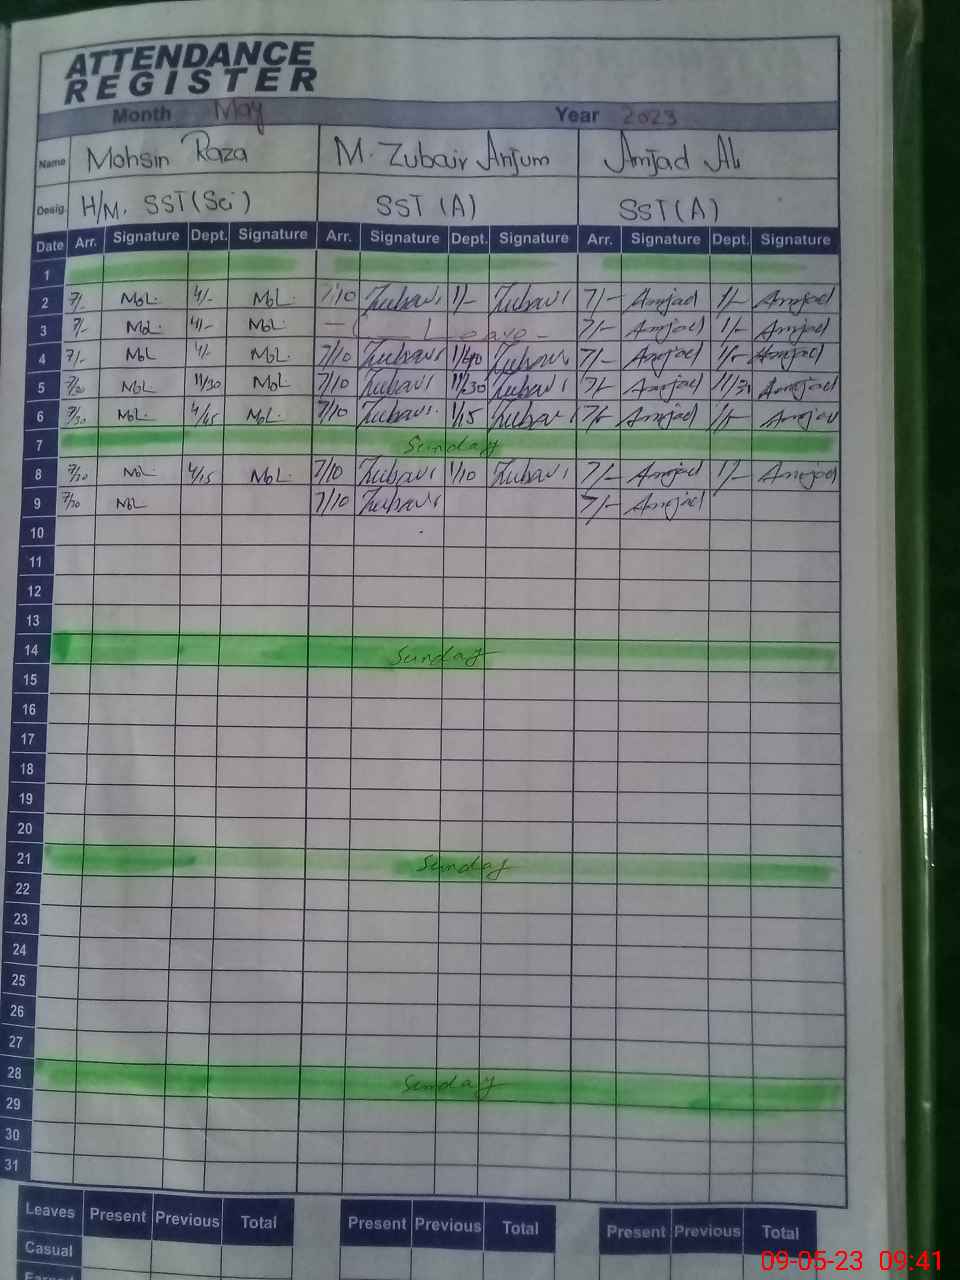 ATTENDANCE
REGISTER
Month May Year 2023
Name Mohsin Raza M. Zubair Anjum Amjad Ali
Desig. H/M. SST(Sci) SST (A) SST(A)
Date Arr. Signature Dept. Signature Arr. Signature Dept. Signature Arr. Signature Dept. Signature
1
2 7/- 4/- 7/10 Zubair 1/- Zubair 7/- Amjad 1/- Amjad
3 7/- 4/- Leave 7/- Amjad 1/- Amjad
4 7/- 4/- 7/10 Zubair 1/40 Zubair 7/- Amjad Amjad
5 7/30 11/30 7/10 Zubair 11/30 Zubair 7/- Amjad Amjad
6 7/30 4/45 7/10 Zubair 1/15 Zubair 7/- Amjad 1/- Amjad
7 Sunday
8 7/20 4/15 7/10 Zubair 1/10 Zubair 7/- Amjad 1/- Amjad
9 7/10 Zubair 7/- Amjad
10
11
12
13
14 Sunday
15
16
17
18
19
20
21 Sunday
22
23
24
25
26
27
28 Sunday
29
30
31
Leaves Present Previous Total Present Previous Total Present Previous Total
Casual
09-05-23 09:41